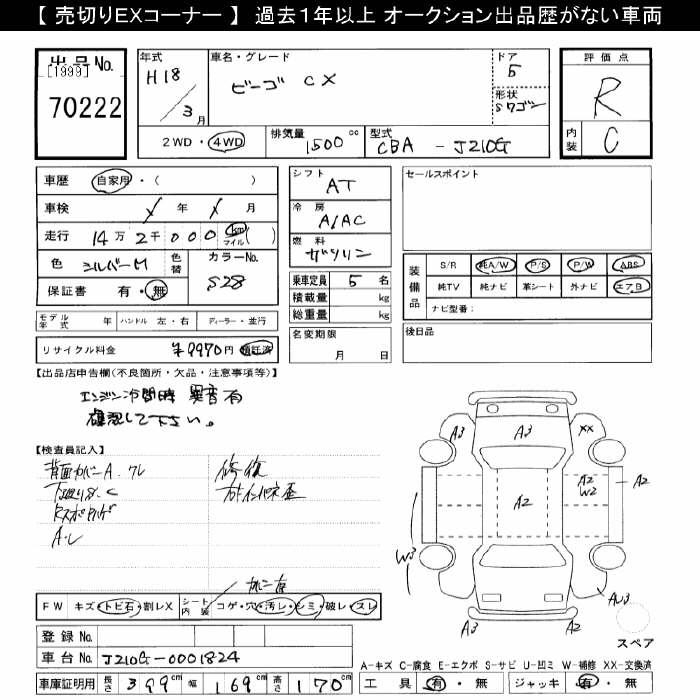 【 売切りEXコーナー 】 過去１年以上 オークション出品歴がない車両
出品No.
[1999]
70222
年式
H18
3月
車名・グレード
ビーゴ CX
ドア
5
形状
Sワゴン
2WD・4WD
排気量
1500cc
型式
CBA - J210G
評価点
R
内装
C
車歴 自家用・( )
車検 年 月
走行 14万2千000km マイル( )
色 シルバーM 色替 カラーNo. S28
保証書 有・無
モデル年式 年 ハンドル 左・右 ディーラー・並行
リサイクル料金 ¥9970円 預託済
シフト
AT
冷房
A/AC
燃料
ガソリン
乗車定員 5 名
積載量 kg
総重量 kg
名変期限
月 日
セールスポイント
装備品
S/R 純A/W P/S P/W ABS
純TV 純ナビ 革シート 外ナビ エアB
ナビ型番:
後日品
【出品店申告欄(不良箇所・欠品・注意事項等)】
エンジン冷間時 異音有
確認して下さい。
【検査員記入】
背面カバーA.ワレ
下廻りS.C
A・レ
修復
カギ一本
FW キズ・トビ石・割レX
シート内装 コゲ・穴・汚レ・シミ・破レ・スレ
登録No.
車台No. J210G-0001824
車庫証明用 長さ 399cm 幅 169cm 高さ 170cm
A3
A3
XX
A2
W2
A2
A2
W3
A3
A3
スペア
A-キズ C-腐食 E-エクボ S-サビ U-凹ミ W-補修 XX-交換済
工具 有・無 ジャッキ 有・無